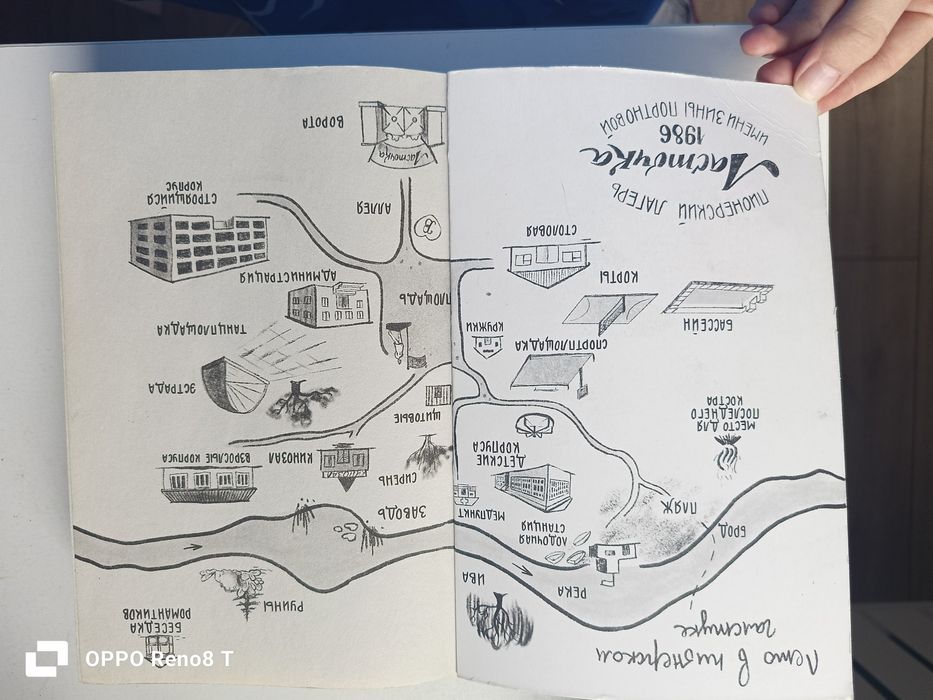 Лето в пионерском
галстуке
РЕКА
ИВА
БРОД
ЛОДОЧНАЯ
СТАНЦИЯ
ПЛЯЖ
МЕДПУНКТ
ДЕТСКИЕ
КОРПУСА
МЕСТО ДЛЯ
ПОСЛЕДНЕГО
КОСТРА
СПОРТПЛОЩАДКА
КРУЖКИ
БАССЕЙН
КОРТЫ
СТОЛОВАЯ
ПИОНЕРСКИЙ ЛАГЕРЬ
Ласточка
1986
ИМЕНИ ЗИНЫ ПОРТНОВОЙ
БЕСЕДКА
РОМАНТИКОВ
РУИНЫ
ЗАВОДЬ
СИРЕНЬ
КИНОЗАЛ
ВЗРОСЛЫЕ КОРПУСА
ЩИТОВЫЕ
ЭСТРАДА
ТАНЦПЛОЩАДКА
ПЛОЩАДЬ
АДМИНИСТРАЦИЯ
АЛЛЕЯ
СТРОЯЩИЙСЯ
КОРПУС
Ласточка
ВОРОТА
OPPO Reno8 T